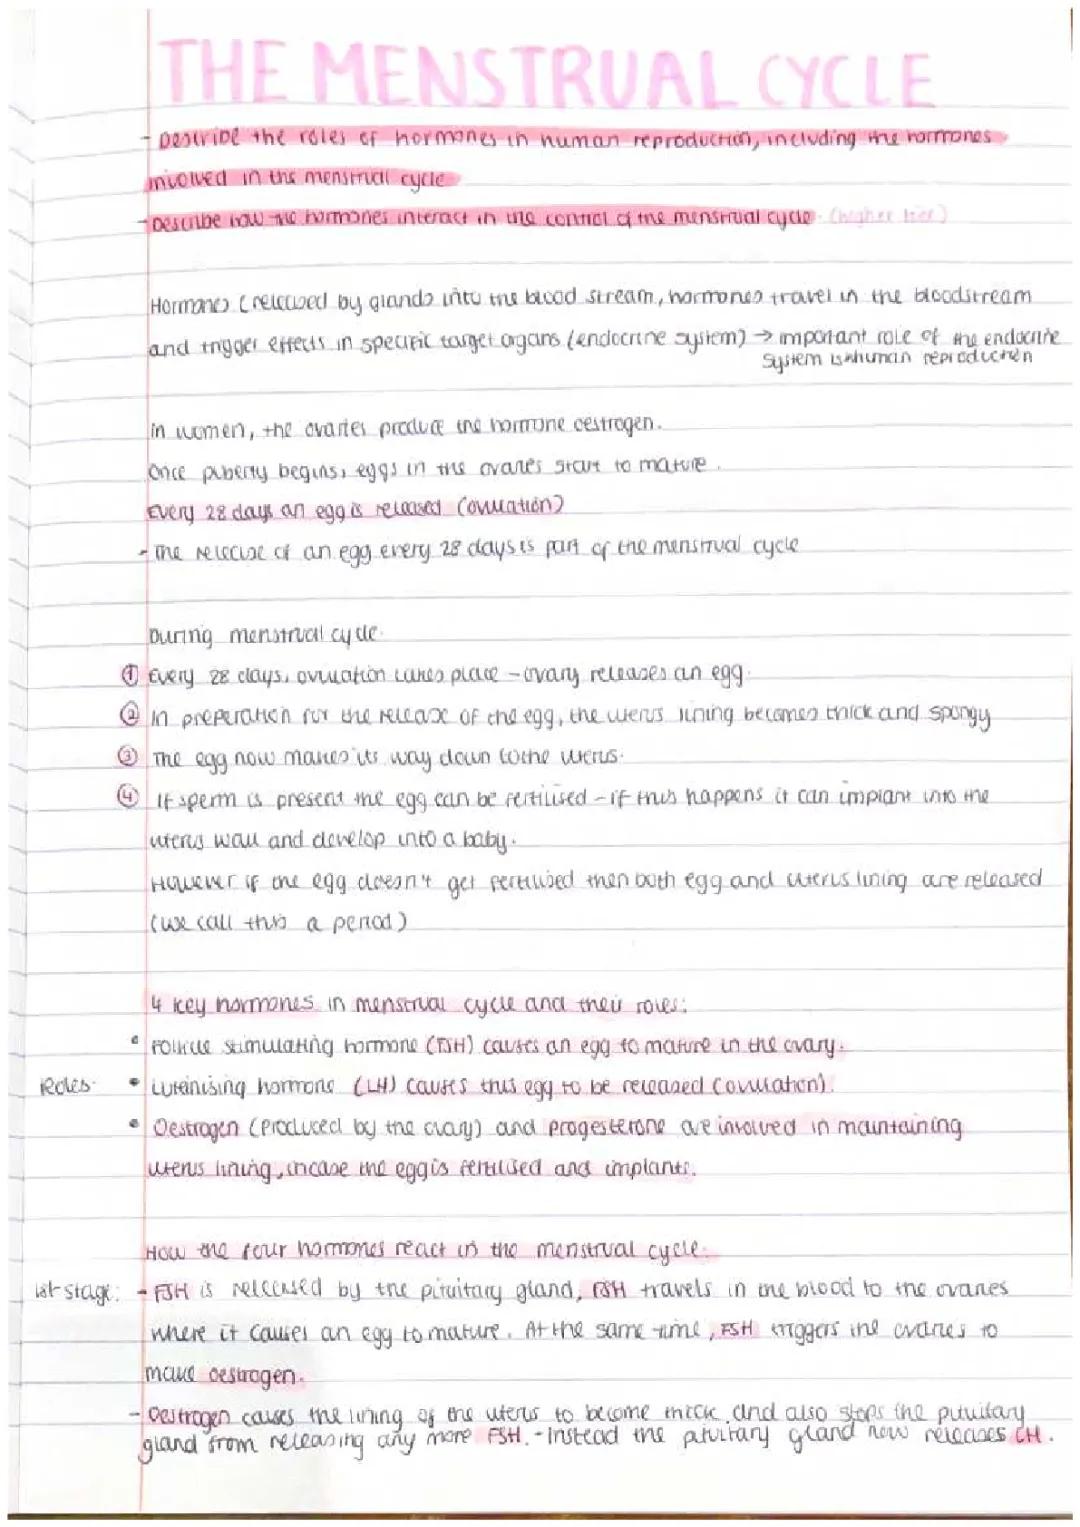 THE MENSTRUAL CYCLE
- Describe the roles of hormones in human reproduction, including the hormones
involved in the menstrual cycle
- Describe how the hormones interact in the control of the menstrual cycle. (higher tier)
Hormones (released by glands into the blood stream, hormones travel in the bloodstream
and trigger effects in specific target organs (endocrine system) → important role of the endocrine
system is human reproduction
in women, the ovaries produce the hormone oestrogen.
Once puberty begins, eggs in the ovaries start to mature.
Every 28 days an egg is released (ovulation)
- The release of an egg every 28 days is part of the menstrual cycle
During menstrual cycle.
① Every 28 days, ovulation takes place - ovary releases an egg.
② In preperation for the release of the egg, the uterus lining becomes thick and spongy
③ The egg now makes its way down to the uterus.
④ If sperm is present the egg can be fertilised - if this happens it can implant into the
uterus wall and develop into a baby.
However if the egg doesn't get fertilised then both egg and uterus lining are released
(we call this a period)
4 key hormones in menstrual cycle and their roles:
• Follicle stimulating hormone (FSH) causes an egg to mature in the ovary.
Roles. • Luteinising hormone (LH) causes this egg to be released (ovulation).
• Oestrogen (produced by the ovary) and progesterone are involved in maintaining
uterus lining, incase the egg is fertilised and implants.
How the four hormones react in the menstrual cycle.
1st stage: - FSH is released by the pituitary gland, FSH travels in the blood to the ovaries
where it causes an egg to mature. At the same time, FSH triggers the ovaries to
make oestrogen.
- Oestrogen causes the lining of the uterus to become thick and also stops the pituitary
gland from releasing any more FSH. - Instead the pituitary gland now releases LH.